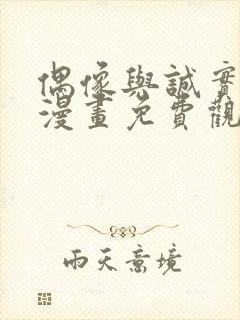 偶像與誠實
漫畫免費觀
雨天意境